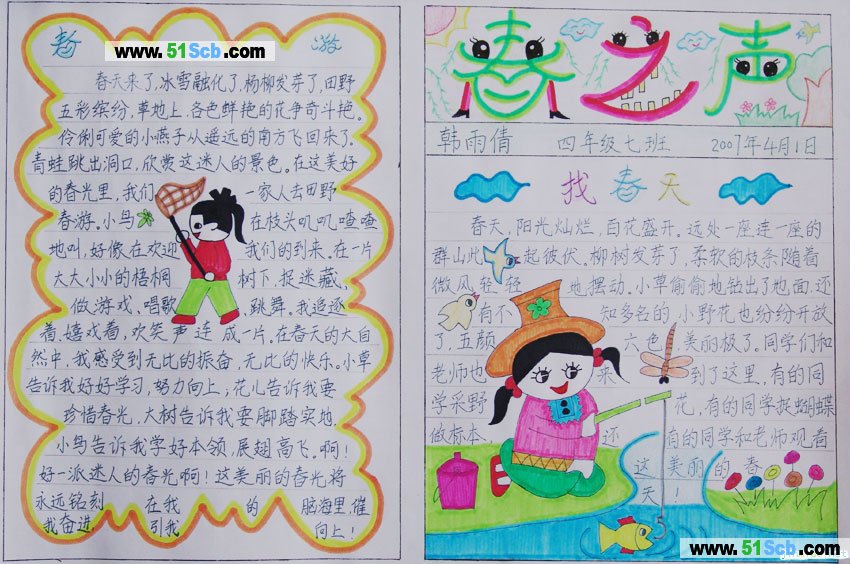 春 激
www.51Scb.com
春天来了,冰雪融化了,杨柳发芽了,田野
五彩缤纷,草地上,各色鲜艳的花争奇斗艳。
伶俐可爱的小燕子从遥远的南方飞回来了。
青蛙跳出洞口,欣赏这迷人的景色。在这美好
的春光里,我们一家人去田野
春游。小鸟在枝头叽叽喳喳
地叫,好像在欢迎我们的到来。在一片
大大小小的梧桐树下,捉迷藏、
做游戏、唱歌跳舞。我追逐
着,嬉戏着,欢笑声连成一片。在春天的大自
然中,我感受到无比的振奋,无比的快乐。小草
告诉我好好学习,努力向上;花儿告诉我要
珍惜春光,大树告诉我要脚踏实地,
小鸟告诉我学好本领,展翅高飞。啊!
好一派迷人的春光啊!这美丽的春光将
永远铭刻在我的脑海里,催
我奋进引我向上!
www.51Scb.com
春之声
韩雨倩 四年级七班 2007年4月1日
找春天
春天,阳光灿烂,百花盛开。远处一座连一座的
群山此起彼伏。柳树发芽了,柔软的枝条随着
微风轻轻地摆动。小草偷偷地钻出了地面,还
有不知多名的小野花也纷纷开放
了,五颜六色,美丽极了。同学们和
老师也来到了这里,有的同
学采野花,有的同学捉蝴蝶
做标本,还有的同学和老师观看
这美丽的春
天!
www.51Scb.com